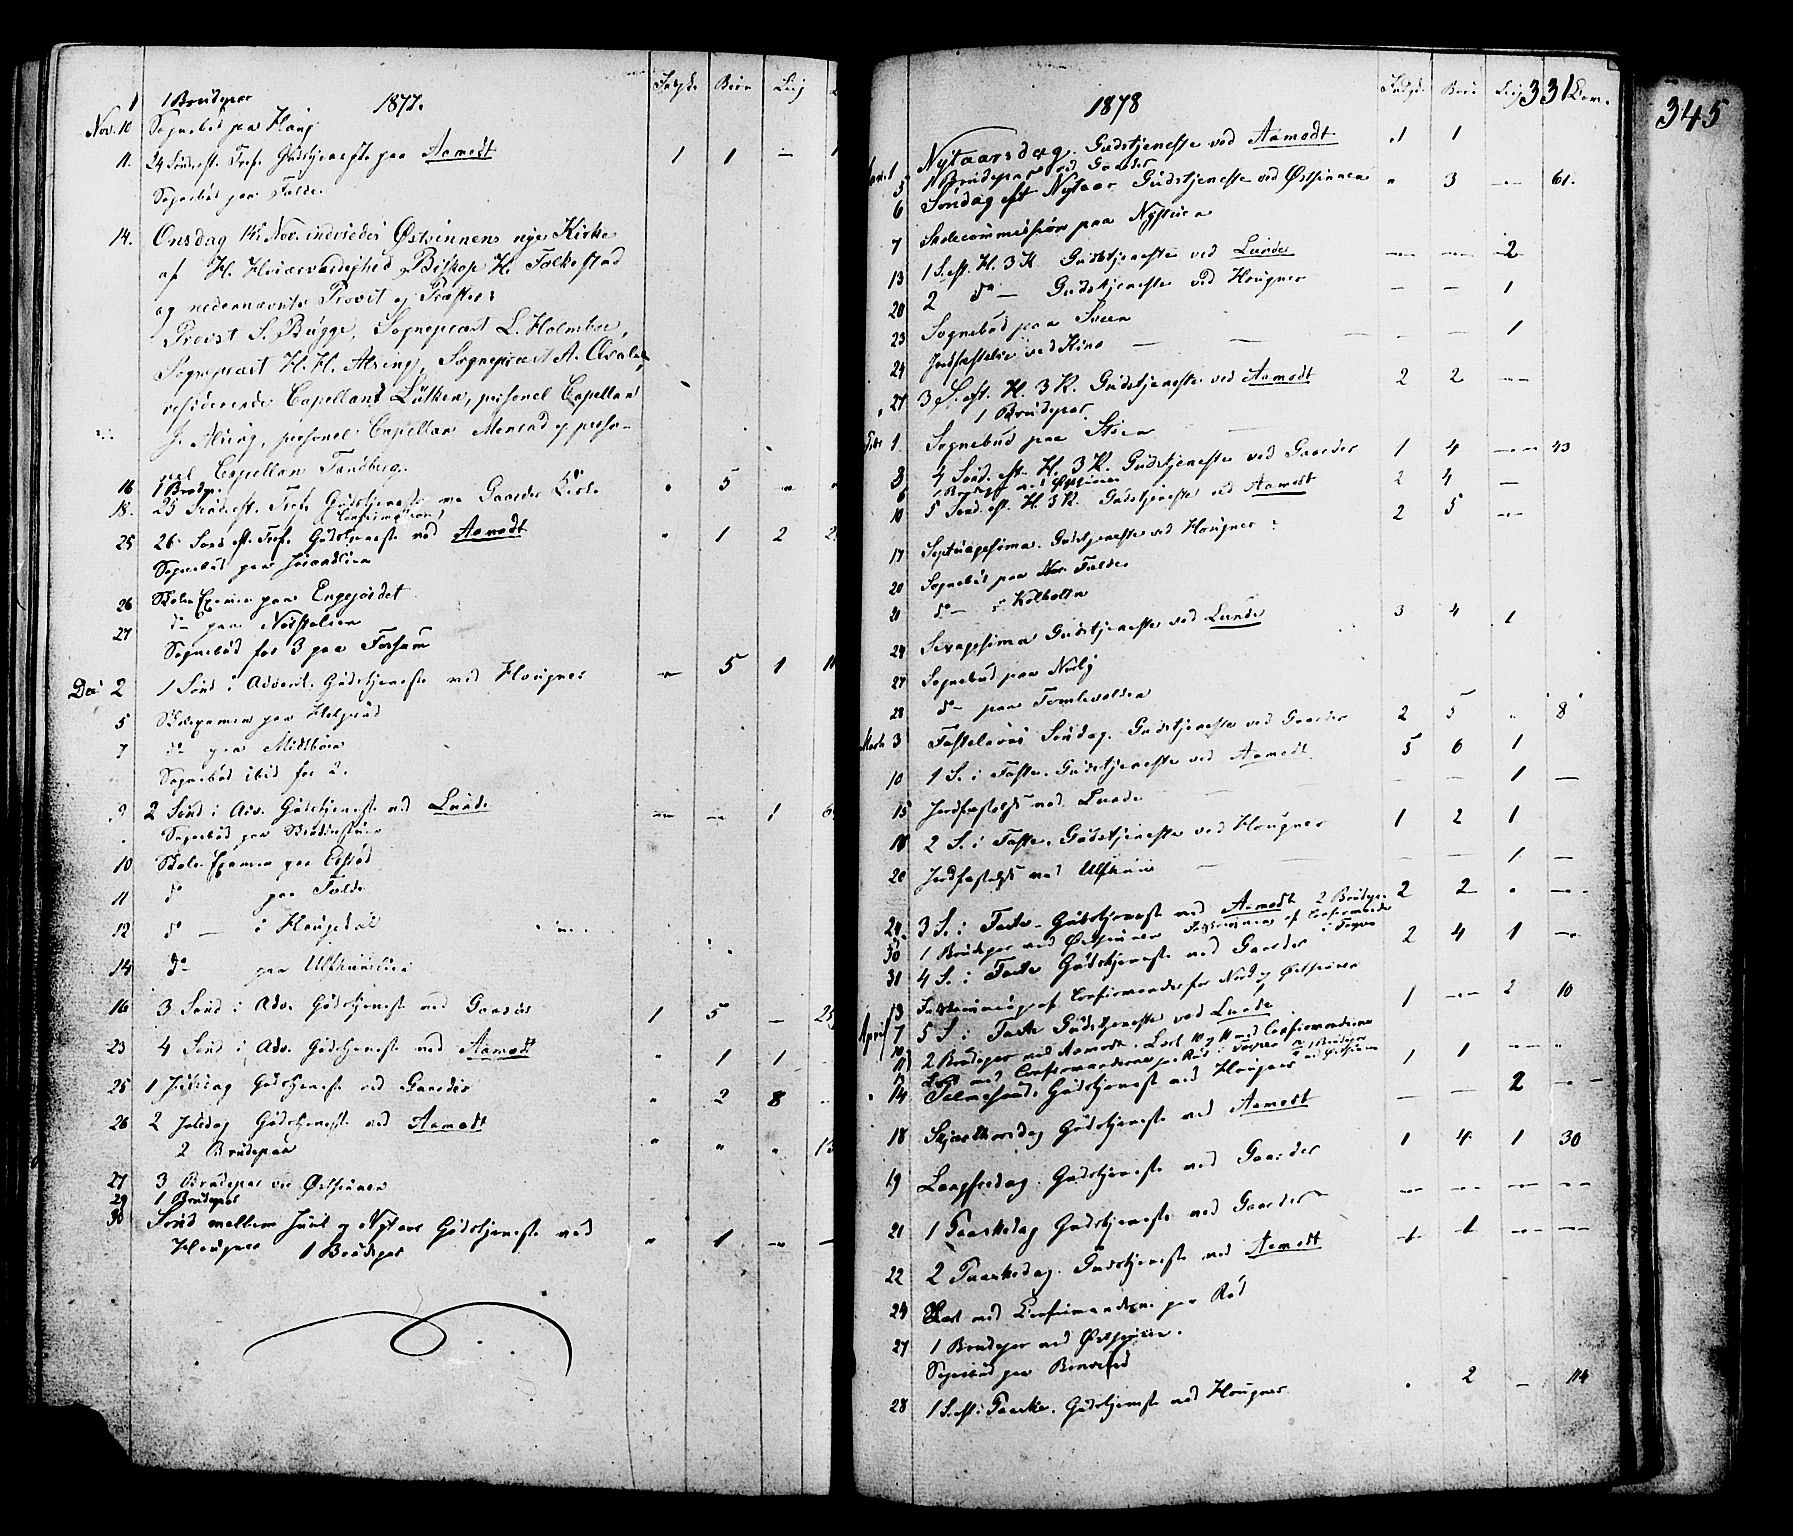 1877.
Indgt. Børn Liig
1 1 Brudepar
Nov. 10 Sognebud paa Haug
11. 24 Sønd. eft. Tref. Gudstjeneste paa Aamodt 1 1 — 1
Sognebud paa Falde.
14. Onsdag 14 Nov. indviedes Østsinnens nye Kirke
af H. Høiærværdighed Biskop H. Folkestad
og nedennævnte Provst og Præster:
Provst S. Bugge, Sognepræst L. Holmboe,
Sognepræst H. H. Alsing, Sognepræst A.
residerende Capellan Lütken, personel Capellan
J. Alsing, personel Capellan Menstad og perso-
nel Capellan Tandberg.
16 1 Brudp.
18. 25 Sønd. eft. Tref. Gudstjeneste ved Gaarder Kirke " 5 — "
(Confirmation)
25 26 Sønd eft. Tref. Gudstjeneste ved Aamodt " 1 2 2
Sognebud paa
26 Skole Examen paa Engejordet
27 do paa Nordstelien
Sognebud for 3 paa Forsum
Dec 2 1 Sønd i Advent. Gudstjeneste ved Hougner — 5 1 11
5 Skoleexamen paa Helgerud
7 do paa Midtbøen
Sognebud ibid for 2.
9 2 Sønd i Adv. Gudstjeneste ved Lunde — — 1 6
Sognebud paa
10 Skole Examen paa
11 do paa Fælde
12 do — i Hougsdal
14 do paa Ulsrudlien
16 3 Sønd i Adv. Gudstjeneste ved Gaarder 1 5 — 25
23 4 Sønd i Adv. Gudstjeneste ved Aamodt " 1 1 —
25 1 Juledag Gudstjeneste ved Gaarder " 2 8
26 2 Juledag Gudstjeneste ved Aamodt
2 Brudepar " " " 15
27 3 Brudepar ved Østsinnen
29 1 Brudepar
30 Sønd mellem Juul og Nytaar Gudstjeneste ved
Hougner 1 Brudepar " 1 — —
1878
331
345
Indgt. Børn Liig Com.
Nytaarsdag. Gudstjeneste ved Aamodt 1 1
5 1 Brudepar ved Gaarder
6 Søndag eft Nytaar Gudstjeneste ved Østsinnen " 3 — 61.
7 Skolecommission paa Nystuen
13 1 S. eft. H. 3 K. Gudstjeneste ved Lunde — — 2
20 2 do — Gudstjeneste ved Hougner — — 1
23 Sognebud paa Sveen
24 Jordfæstelse ved Kina — — — — 1
27 3 S. eft. H. 3 K. Gudstjeneste ved Aamodt 2 2 —
1 Brudepar
Febr 1 Sognebud paa Steen
3 4 Sønd. eft. H. 3 K. Gudstjeneste ved Gaarder 1 4 — 43
6 1 Brudepar ved Østsinnen
10 5 Sønd. eft. H. 3 K. Gudstjeneste ved Aamodt 2 4 —
17 Septuagesima. Gudstjeneste ved Hougner 2 5 —
20 Sognebud paa Falde
21 do — Kolbolten
24 Sexagesima Gudstjeneste ved Lunde 3 4 1
27 Sognebud paa Nøbÿ
28 do paa Tomlevolden
Marts 3 Fastelavns Søndag. Gudstjeneste ved Gaarder 2 5 " 8
10 1 S. i Faste. Gudstjeneste ved Aamodt 5 6 1
15 Jordfæstelse ved Lunde — — 1 —
18 2 S. i Faste. Gudstjeneste ved Hougner 1 2 1
20 Jordfæstelse ved Ulsrud — — 1 —
24 3 S. i Faste. Gudstjeneste ved Aamodt 2 Brudepar 2 2 " —
30 1 Brudepar ved Østsinnen Indskrivning af Confirmander
i Torpen
31 4 S. i Faste Gudstjeneste ved Gaarder 2 4 1 —
3 Indskrivning af Confirmander for Nord og Østsinnen
April 7 5 S. i Faste Gudstjeneste ved Lunde 1 — 2 10
2 Brudepar ved Aamodt. Læst 10 og 11 med Confirmanderne
Læst med Confirmanderne paa Rud i Torpen 1 Brudepar
ved Østsinnen
14 Palmesønd. Gudstjeneste ved Hougner 1 1 — "
18 Skjærthorsdag Gudstjeneste ved Aamodt — — 2 —
19 Langfredag Gudstjeneste ved Gaarder 1 4 1 30
21 1 Paaskedag Gudstjeneste ved Gaarder — — — —
22 2 Paaskedag. Gudstjeneste ved Aamodt 1 1 — —
24 Læst med Confirmanderne paa Rud
27 1 Brudepar ved Østsinnen.
Sognebud paa
28 1 S. eft. Paaske. Gudstjeneste ved Hougner " 2 — 114